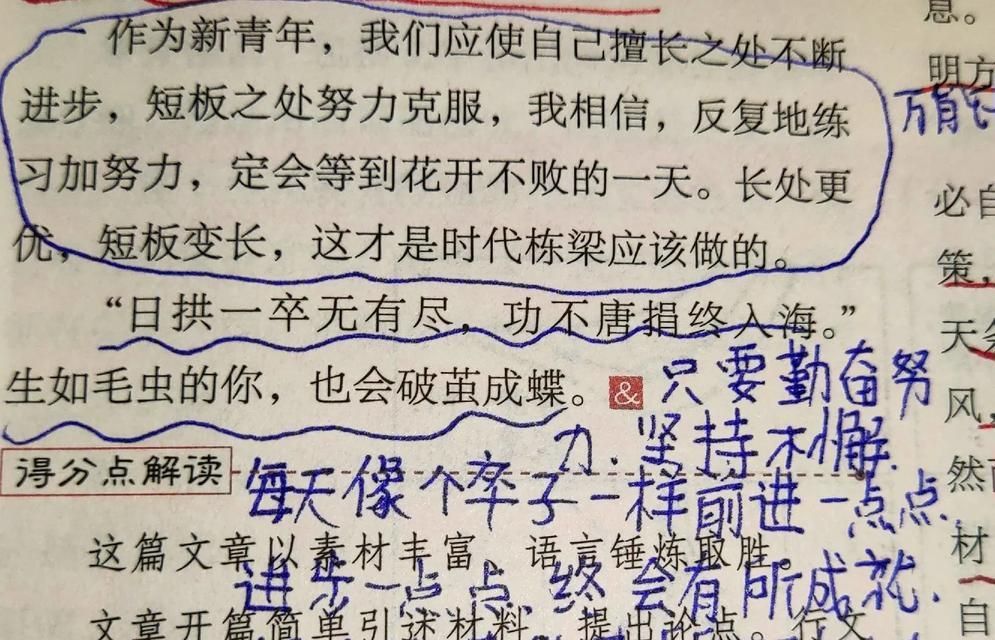 作为新青年，我们应使自己擅长之处不断
进步，短板之处努力克服，我相信，反复地练
习加努力，定会等到花开不败的一天。长处更
优，短板变长，这才是时代栋梁应该做的。
“日拱一卒无有尽，功不唐捐终入海。”
生如毛虫的你，也会破茧成蝶。&
只要勤奋努
力.坚持不懈.
得分点解读
每天像个卒子一样前进一点点.
这篇文章以素材丰富、语言锤炼取胜。
进步一点点.终会有所成就.
文章开篇简单引述材料，提出论点。行文
息。
明方
必自
策，
天
风，
然而
材
自